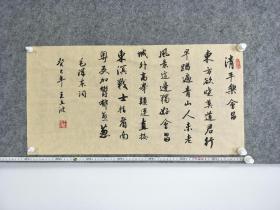 清平樂會昌
東方欲曉莫道君行
早踏遍青山人未老
風景這邊獨好會昌
城外高峰顛連直接
東溟戰士指看南
粵更加鬱鬱蔥蔥
毛澤東詞
癸巳年王